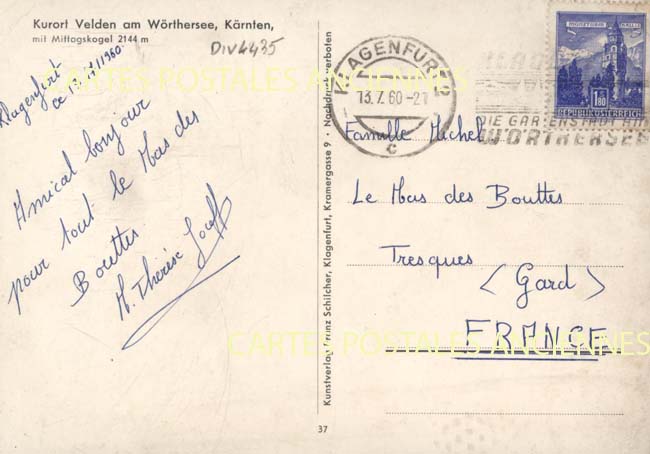 Kurort Velden am Wörthersee, Kärnten,
mit Mittagskogel 2144 m
DIV4435
Klagenfurt
ce
Amical bonjour
pour tout le Mas des
Bouttes
M. Thérèse
Kunstverlag Franz Schilcher, Klagenfurt, Kramergasse 9 · Nachdruck verboten
KLAGENFURT 2
13.7.60-21
c
DIE GARTENSTADT AM
WÖRTHERSEE
1.80
REPUBLIK ÖSTERREICH
Famille Michel
Le Mas des Bouttes
Tresques
(Gard)
FRANCE
37
CARTES POSTALES ANCIENNES
CARTES POSTALES ANCIENNES